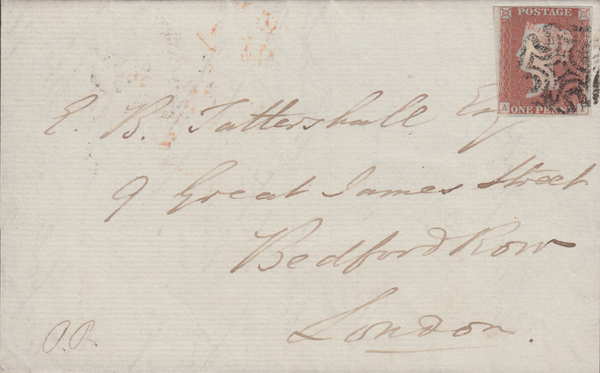 POSTAGE
A
ONE PEN
E. B. Tattershall Esq
9 Great James Street
Bedford Row
London.
P.P.